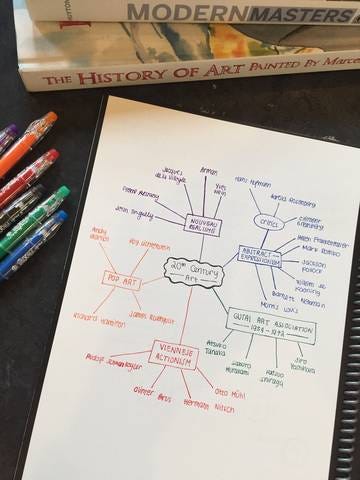 MODERN MASTERS
THE HISTORY OF ART PAINTED BY
Jacques
de la Villeglé
Arman
Yves
Klein
NOUVEAU
REALISME
Hans Hofmann
Harold Rosenberg
Clement
Greenberg
CRITICS
ABSTRACT
EXPRESSIONISM
Helen Frankenthaler
Mark Rothko
Jackson
Pollock
Willem de
Kooning
Barnett Newman
Morris Louis
20th Century
Art
Andy
Warhol
Roy Lichtenstein
POP ART
Richard Hamilton
James Rosenquist
GUTAI ART ASSOCIATION
1954 - 1972
Atsuko
Tanaka
Saburo
Murakami
Kazuo
Shiraga
Jiro
Yoshihara
VIENNESE
ACTIONISM
Otto Mühl
Hermann Nitsch